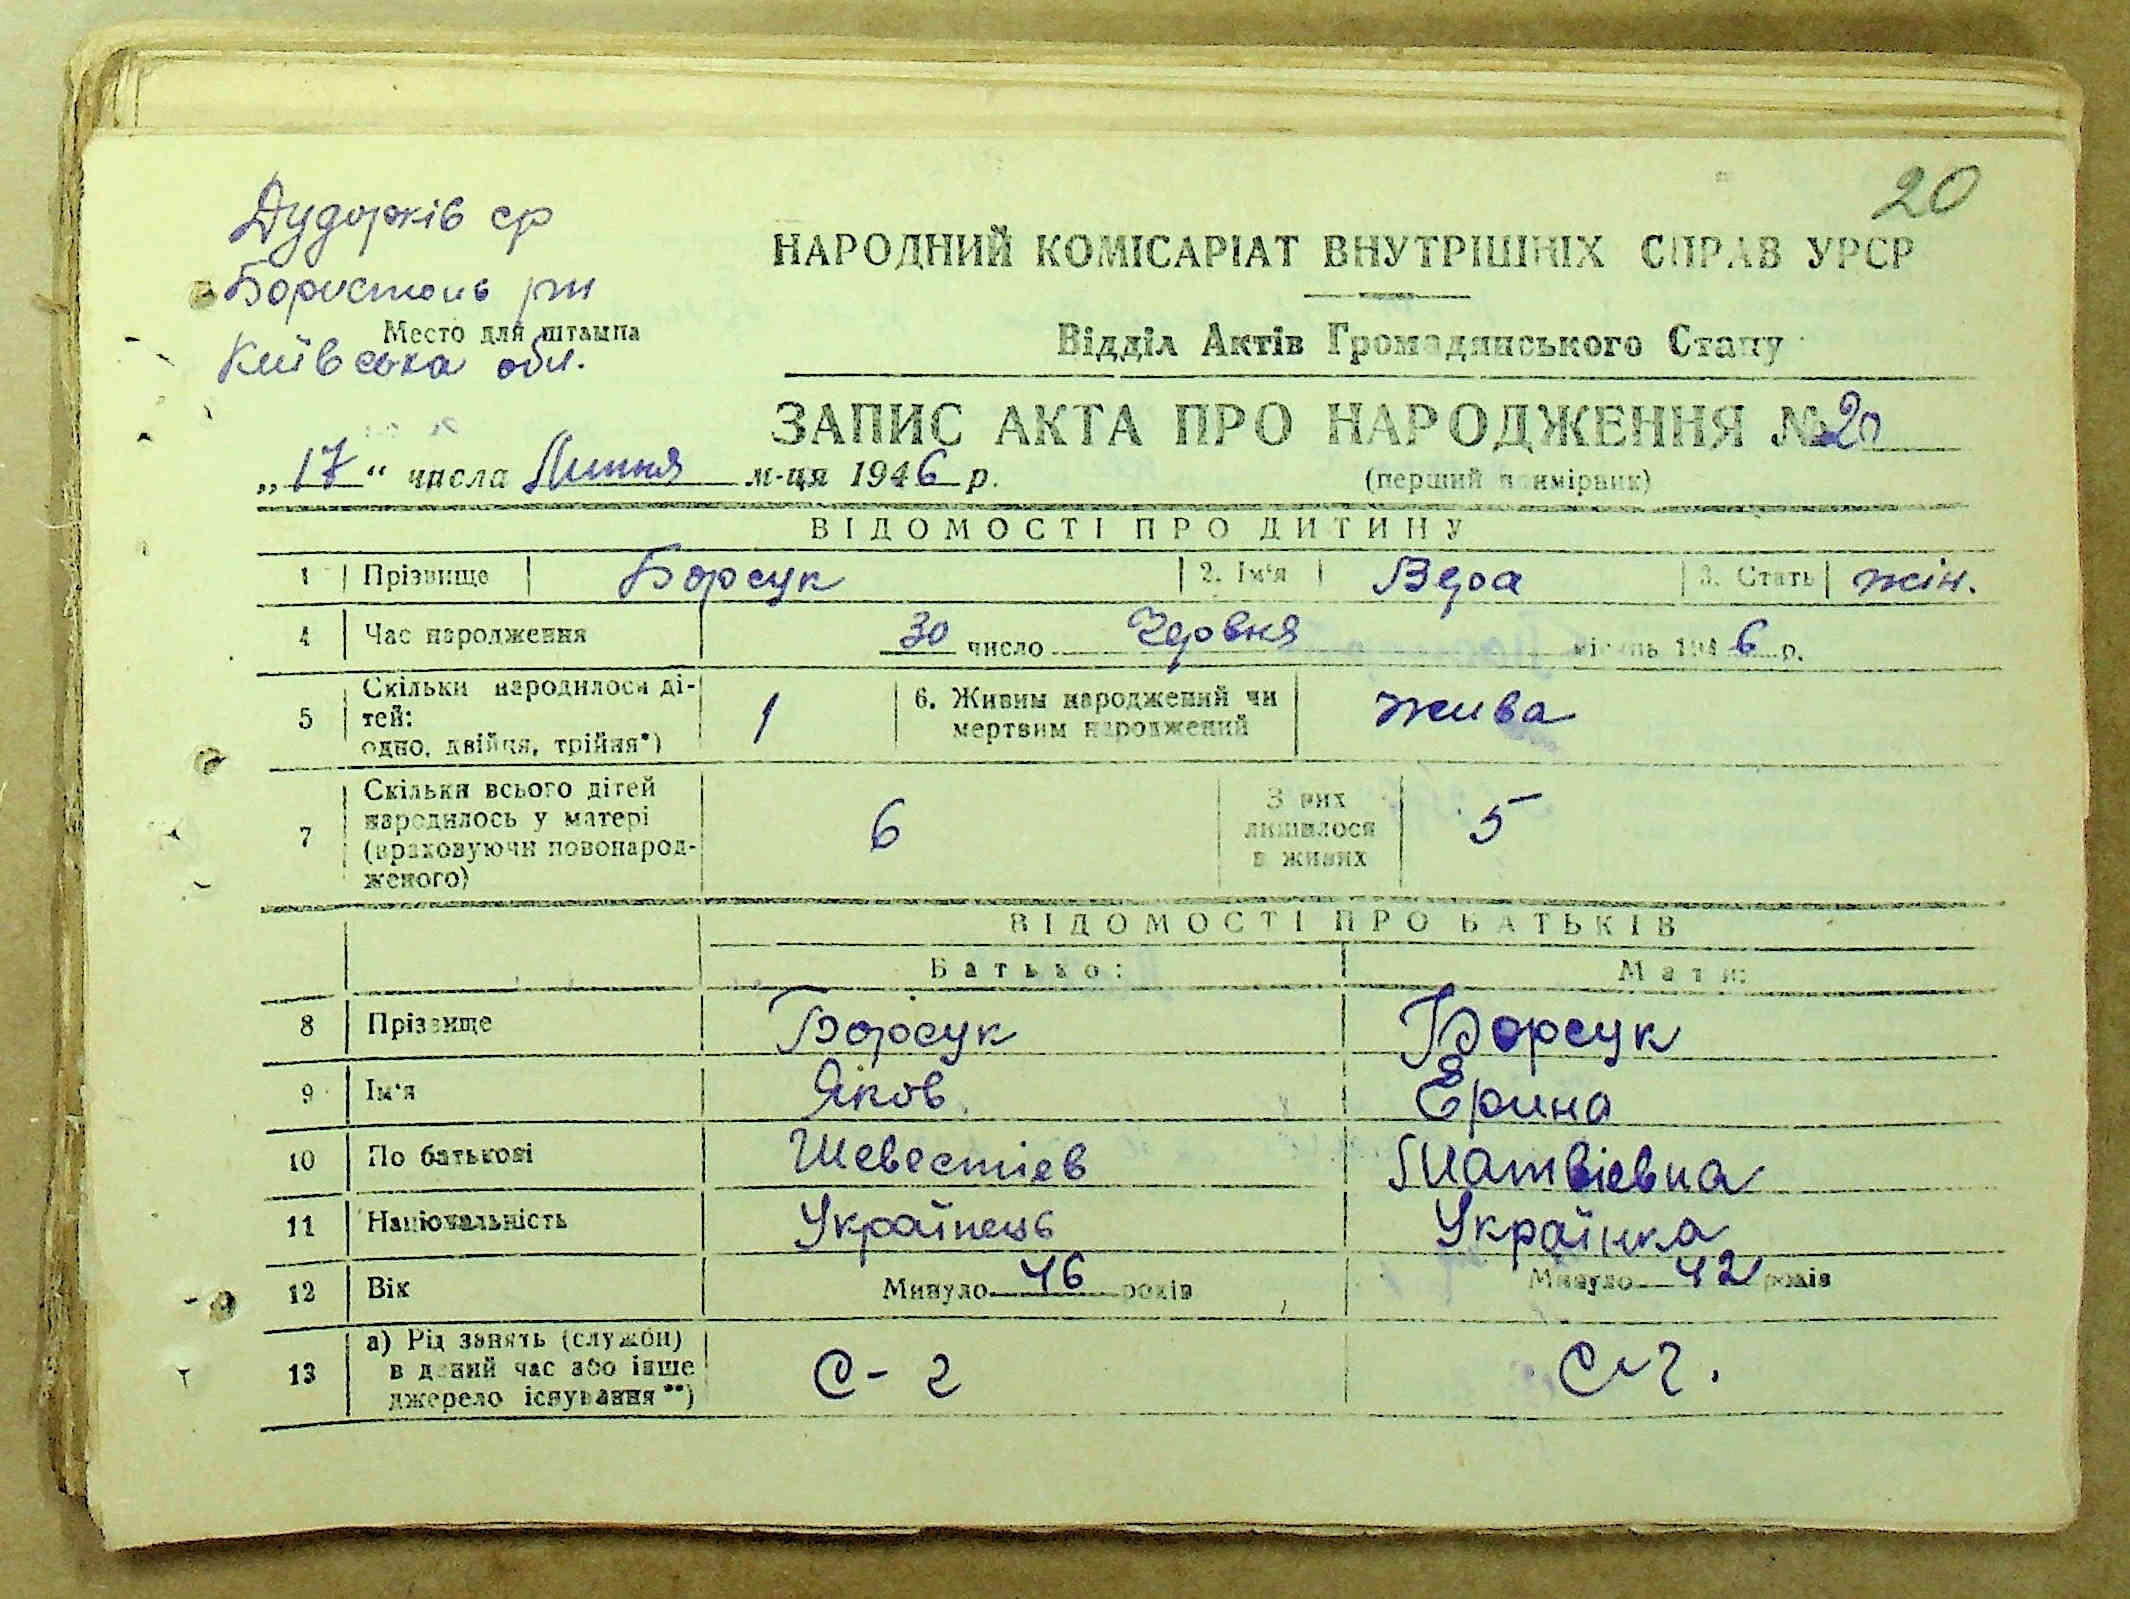 20
Дударків ср
Бориспонь рн
Место для штампа
Київська обл.
НАРОДНИЙ КОМІСАРІАТ ВНУТРІШНІХ СПРАВ УРСР
Відділ Актів Громадянського Стану
ЗАПИС АКТА ПРО НАРОДЖЕННЯ № 20
„17“ числа Липня м-ця 1946 р.
(перший примірник)
ВІДОМОСТІ ПРО ДИТИНУ
1 Прізвище Борсук 2. Ім'я Вера 3. Стать жін.
4 Час народження 30 число Червня місяць 1946 р.
5 Скільки народилося ді-
тей:
одно, двійня, трійня*)
1
6. Живим народжений чи
мертвим народжений
жива
7 Скільки всього дітей
народилось у матері
(враховуючи новонарод-
женого)
6
З них
лишилося
в живих
5
ВІДОМОСТІ ПРО БАТЬКІВ
Батько: Мати:
8 Прізвище Борсук Борсук
9 Ім'я Яков Ерина
10 По батькові Шевестієв Матвієвна
11 Національність Українець Українка
12 Вік Минуло 46 років Минуло 42 років
13 а) Рід занять (служби)
в даний час або інше
джерело існування**)
С-г С-г.